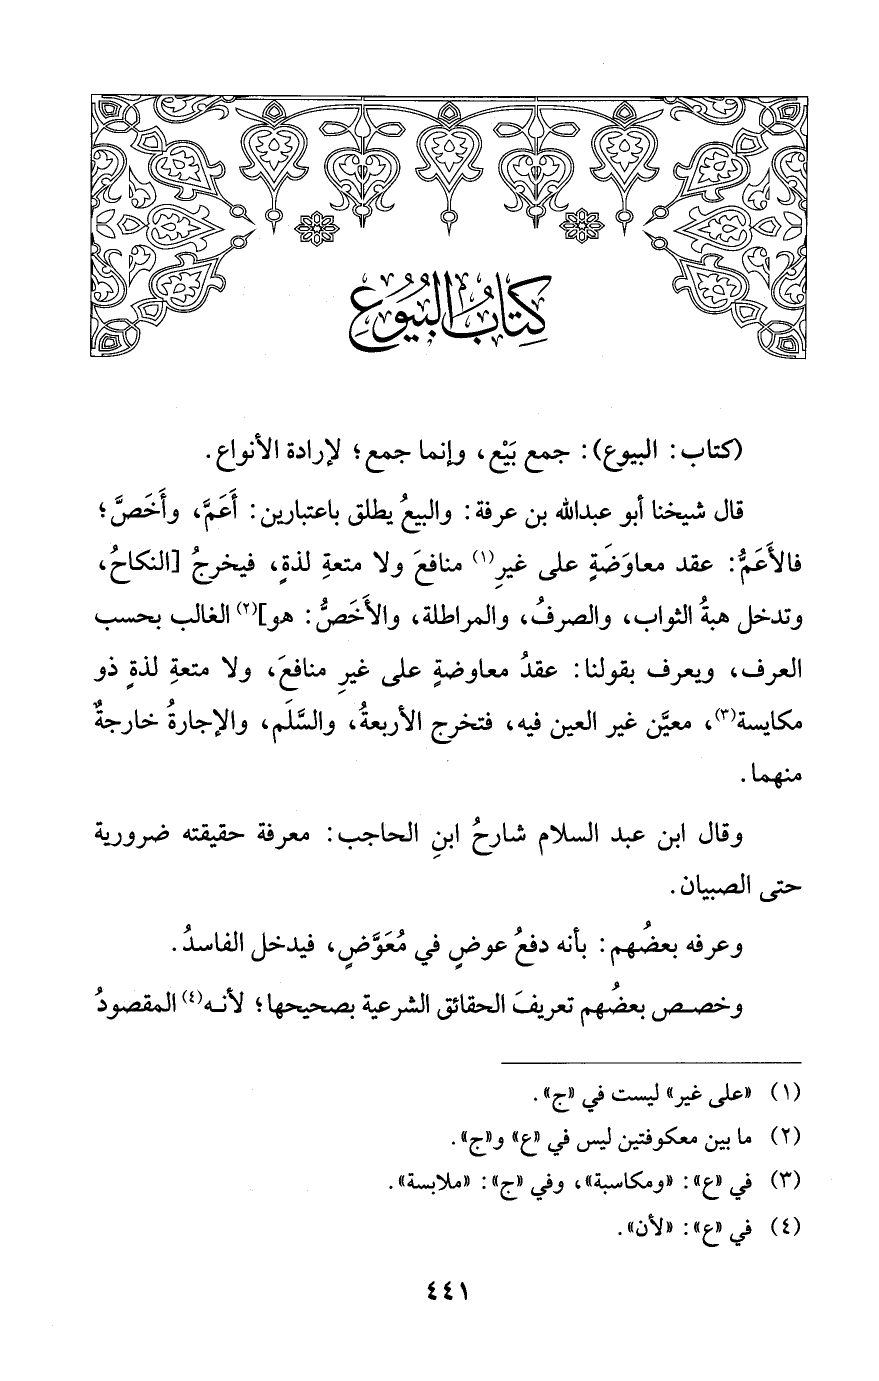 كِتَابُ البُيُوعِ
(كتاب: البيوع): جمع بَيْع، وإنما جمع؛ لإرادة الأنواع.
قال شيخنا أبو عبدالله بن عرفة: والبيعُ يطلق باعتبارين: أَعَمَّ، وأَخَصَّ؛
فالأَعَمُّ: عقد معاوَضَةٍ على غيرِ(١) منافعَ ولا متعةِ لذةٍ، فيخرجُ [النكاحُ،
وتدخل هبةُ الثواب، والصرفُ، والمراطلة، والأَخَصُّ: هو](٢) الغالب بحسب
العرف، ويعرف بقولنا: عقدُ معاوضةٍ على غيرِ منافعَ، ولا متعةِ لذةٍ ذو
مكايسة(٣)، معيَّن غير العين فيه، فتخرج الأربعةُ، والسَّلَم، والإجارةُ خارجةٌ
منهما.
وقال ابن عبد السلام شارحُ ابنِ الحاجب: معرفة حقيقته ضرورية
حتى الصبيان.
وعرفه بعضُهم: بأنه دفعُ عوضٍ في مُعَوَّضٍ، فيدخل الفاسدُ.
وخصص بعضُهم تعريفَ الحقائق الشرعية بصحيحها؛ لأنه(٤) المقصودُ
(١) «على غير» ليست في «ج».
(٢) ما بين معكوفتين ليس في «ع» و«ج».
(٣) في «ع»: «ومكاسبة»، وفي «ج»: «ملابسة».
(٤) في «ع»: «لأن».
٤٤١